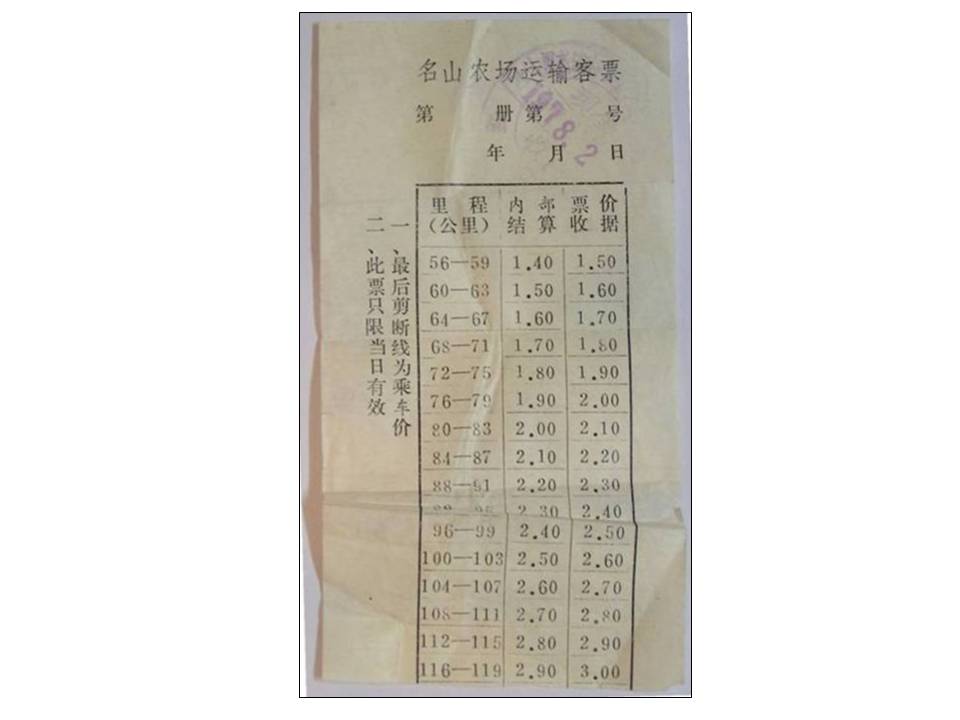 名山农场运输客票
第 册第 号
1978.2
年 月 日
里程(公里) 内部结算 票价收据
56—59 1.40 1.50
60—63 1.50 1.60
64—67 1.60 1.70
68—71 1.70 1.80
72—75 1.80 1.90
76—79 1.90 2.00
80—83 2.00 2.10
84—87 2.10 2.20
88—91 2.20 2.30
92—95 2.30 2.40
96—99 2.40 2.50
100—103 2.50 2.60
104—107 2.60 2.70
108—111 2.70 2.80
112—115 2.80 2.90
116—119 2.90 3.00
一、最后剪断线为乘车价
二、此票只限当日有效